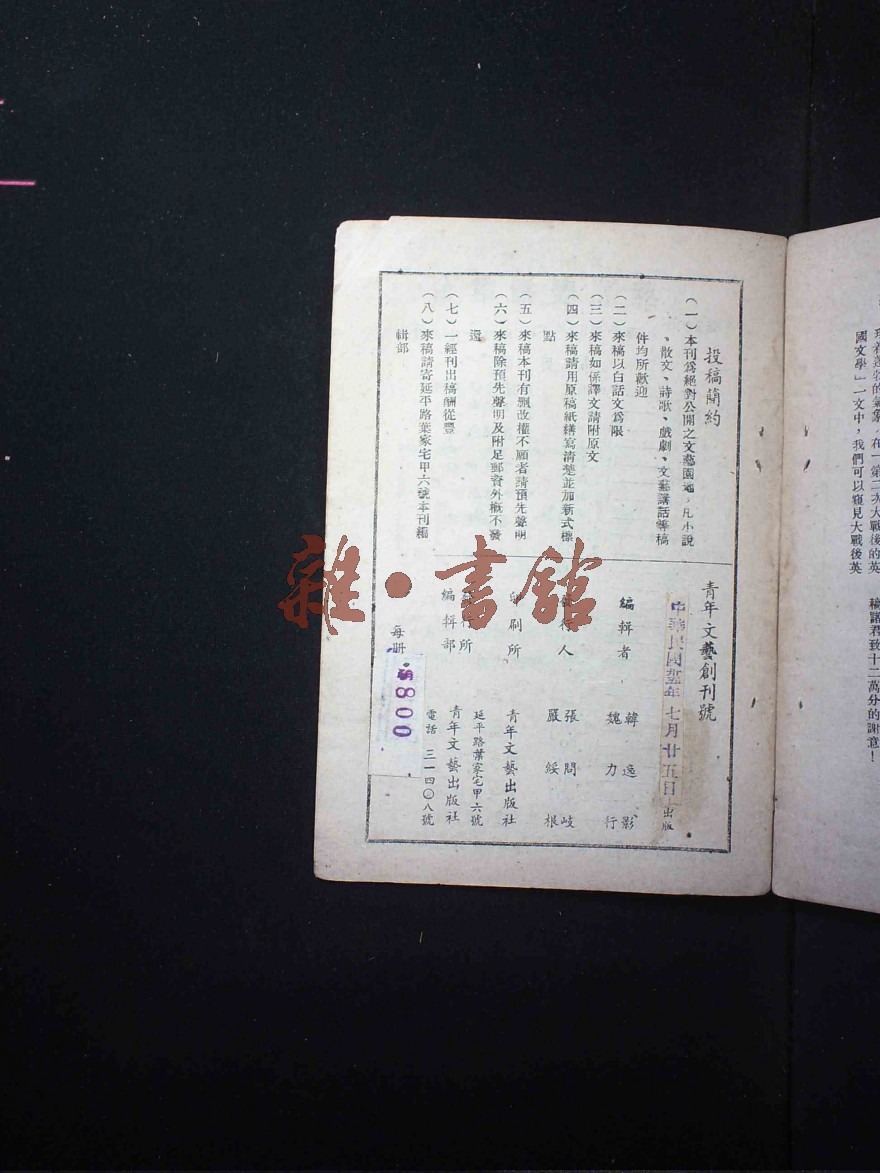 國文學」一文中，我們可以窺見大戰後英
稿諸君致十二萬分的謝意！
投稿簡約
（一）本刊爲絕對公開之文藝園地，凡小說
、散文、詩歌、戲劇、文藝講話等稿
件均所歡迎
（二）來稿以白話文爲限
（三）來稿如係譯文請附原文
（四）來稿請用原稿紙繕寫清楚並加新式標
點
（五）來稿本刊有刪改權不願者請預先聲明
（六）來稿除預先聲明及附足郵資外概不發
還
（七）一經刊出稿酬從豐
（八）來稿請寄延平路葉家宅甲六號本刊編
輯部
青年文藝創刊號
中華民國卅五年七月廿五日出版
編輯者 韓逸影
魏力行
發行人 張問岐
嚴綏根
印刷所 青年文藝出版社
發行所 延平路葉家宅甲六號
編輯部 青年文藝出版社
電話 三一四〇八號
每冊
800
雜·書館